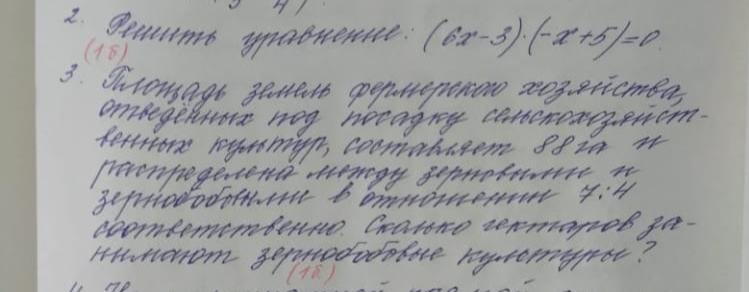 2. Решить уравнение: (6x-3)·(-x+5)=0.
(1б)
3. Площадь земель фермерского хозяйства,
отведённых под посадку сельскохозяйст-
венных культур, составляет 88 га и
распределена между зерновыми и
зернобобовыми в отношении 7:4
соответственно. Сколько гектаров за-
нимают зернобобовые культуры?
(1б)